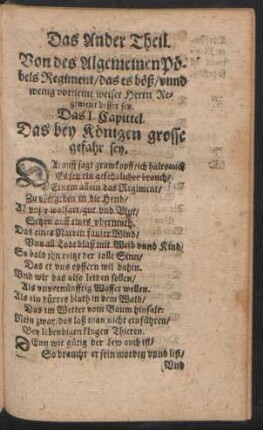 Das Ander Theil.
Von des Algemeinen Pö-
bels Regiment/ das es böß/ vnnd
wenig vorneme weiser Herrn Re-
giment besser sey.
Das I. Capittel.
Das bey Königen grosse
gefahr sey.
DArauff sagt grawkopff/ ich halts auch
Es sey ein gefehrlicher brauch/
Einem allein das Regiment/
Zu vbergeben in die Hend/
All vnser walfart/ gut vnd Blut/
Setzen auff eines vbermuth.
Das eines Narren fauler Wind/
Vns all Todt blaß mit Weib vnnd Kind/
So bald ihn reigt der tolle Sinn/
Das er vns opffern wil dahin.
Vnd wir das also leiden sollen/
Als vnvernünfftig Wasser wellen.
Als ein dürres blath in dem Wald/
Das im Wetter vom Baum hinfalt:
Nein zwar/ das laß man nicht einführen/
Bey lebendigen klugen Thieren.
DEnn wie gütig der Lew auch ist/
So braucht er sein mordey vnnd list/
Vnd